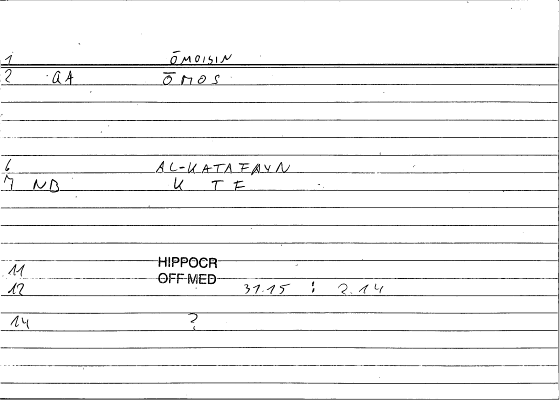 1 ŌMOISIN
2 QA ŌMOS
6 AL-KATAFAYN
7 ND K T F
11 HIPPOCR
OFF MED
12 31.15 : 2.14
14 ?